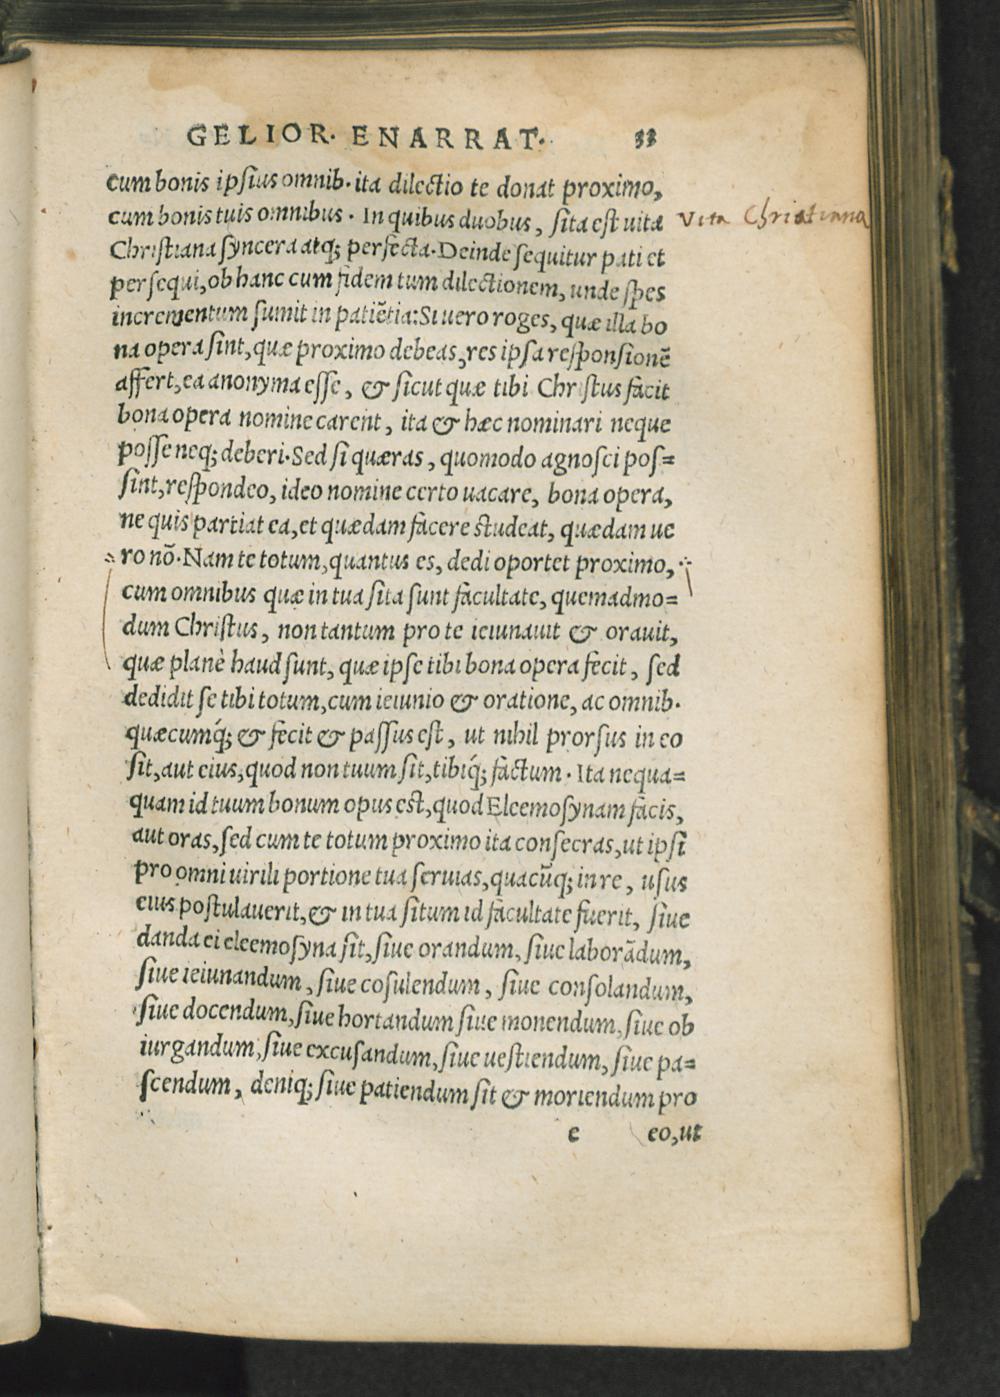 GELIOR· ENARRAT· 33
cum bonis ipsius omnib· ita dilectio te donat proximo,
cum bonis tuis omnibus · In quibus duobus, sita est uita
Vita Christiana
Christiana syncera atq; perfecta· Deinde sequitur pati et
persequi, ob hanc cum fidem tum dilectionem, unde spes
incrementum sumit in patiẽtia: Si uero roges, quæ illa bo
na opera sint, quæ proximo debeas, res ipsa responsionẽ
affert, ea anonyma esse, & sicut quæ tibi Christus facit
bona opera nomine carent, ita & hæc nominari neque
posse neq; deberi· Sed si quæras, quomodo agnosci pos=
sint, respondeo, ideo nomine certo uacare, bona opera,
ne quis partiat ea, et quædam facere studeat, quædam ue
ro nõ· Nam te totum, quantus es, dedi oportet proximo,
cum omnibus quæ in tua sita sunt facultate, quemadmo=
dum Christus, non tantum pro te ieiunauit & orauit,
quæ planè haud sunt, quæ ipse tibi bona opera fecit, sed
dedidit se tibi totum, cum ieiunio & oratione, ac omnib·
quæcumq́; & fecit & passus est, ut nihil prorsus in eo
sit, aut eius, quod non tuum sit, tibiq́; factum · Ita nequa=
quam id tuum bonum opus est, quod Eleemosynam facis,
aut oras, sed cum te totum proximo ita consecras, ut ipsi
pro omni uirili portione tua seruias, quacũq; in re, usus
eius postulauerit, & in tua situm id facultate fuerit, siue
danda ei eleemosyna sit, siue orandum, siue laborãdum,
siue ieiunandum, siue cosulendum, siue consolandum,
siue docendum, siue hortandum siue monendum, siue ob
iurgandum, siue excusandum, siue uestiendum, siue pa=
scendum, deniq; siue patiendum sit & moriendum pro
e eo, ut